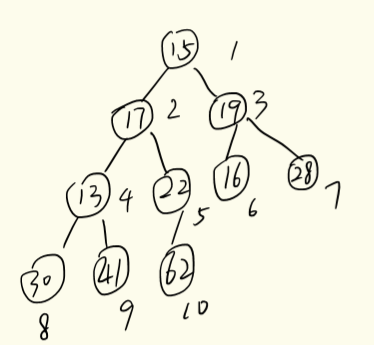 15 1
17 2 19 3
13 4 22 5 16 6 28 7
30 41 62
8 9 10